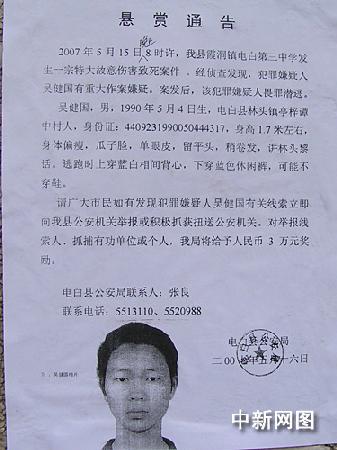 悬赏通告
2007年5月15日晚上8时许，我县霞洞镇电白第三中学发
生一宗特大故意伤害致死案件，经侦查发现，犯罪嫌疑人
吴健国有重大作案嫌疑。案发后，该犯罪嫌疑人畏罪潜逃。
吴健国，男，1990年5月4日生，电白县林头镇亭梓谭
中村人，身份证：440923199005044317，身高1.7米左右，
身体偏瘦，瓜子脸，单眼皮，留平头，稍卷发，讲林头黎
话。逃跑时上穿蓝白相间背心，下穿蓝色休闲裤，可能不
穿鞋。
请广大市民如有发现犯罪嫌疑人吴健国有关线索立即
向我县公安机关举报或积极抓获扭送公安机关。对举报线
索人、抓捕有功单位或个人，我局将给予人民币3万元奖
励。
电白县公安局联系人：张良
联系电话：5513110、5520988
电白县公安局
二00七年五月十六日
中新网图